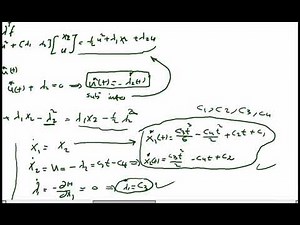 λᵀf
u² + [λ₁ λ₂] [x₂ u] = ½u² + λ₁x₂ + λ₂u
u(t) + λ₂ = 0 ⇒ u*(t) = -λ₂(t)
subs into
+ λ₁x₂ - λ₂² = λ₁x₂ - ½λ₂²
c₁, c₂, c₃, c₄
ẋ₁ = x₂
ẋ₂ = u = -λ₂ = c₃t - c₄ ⇒
λ̇₁ = -∂H/∂x₁ = 0 ⇒ λ₁ = c₃
x₁*(t) = c₃t³/6 - c₄t²/2 + c₂t + c₁
x₂*(t) = c₃t²/2 - c₄t + c₂